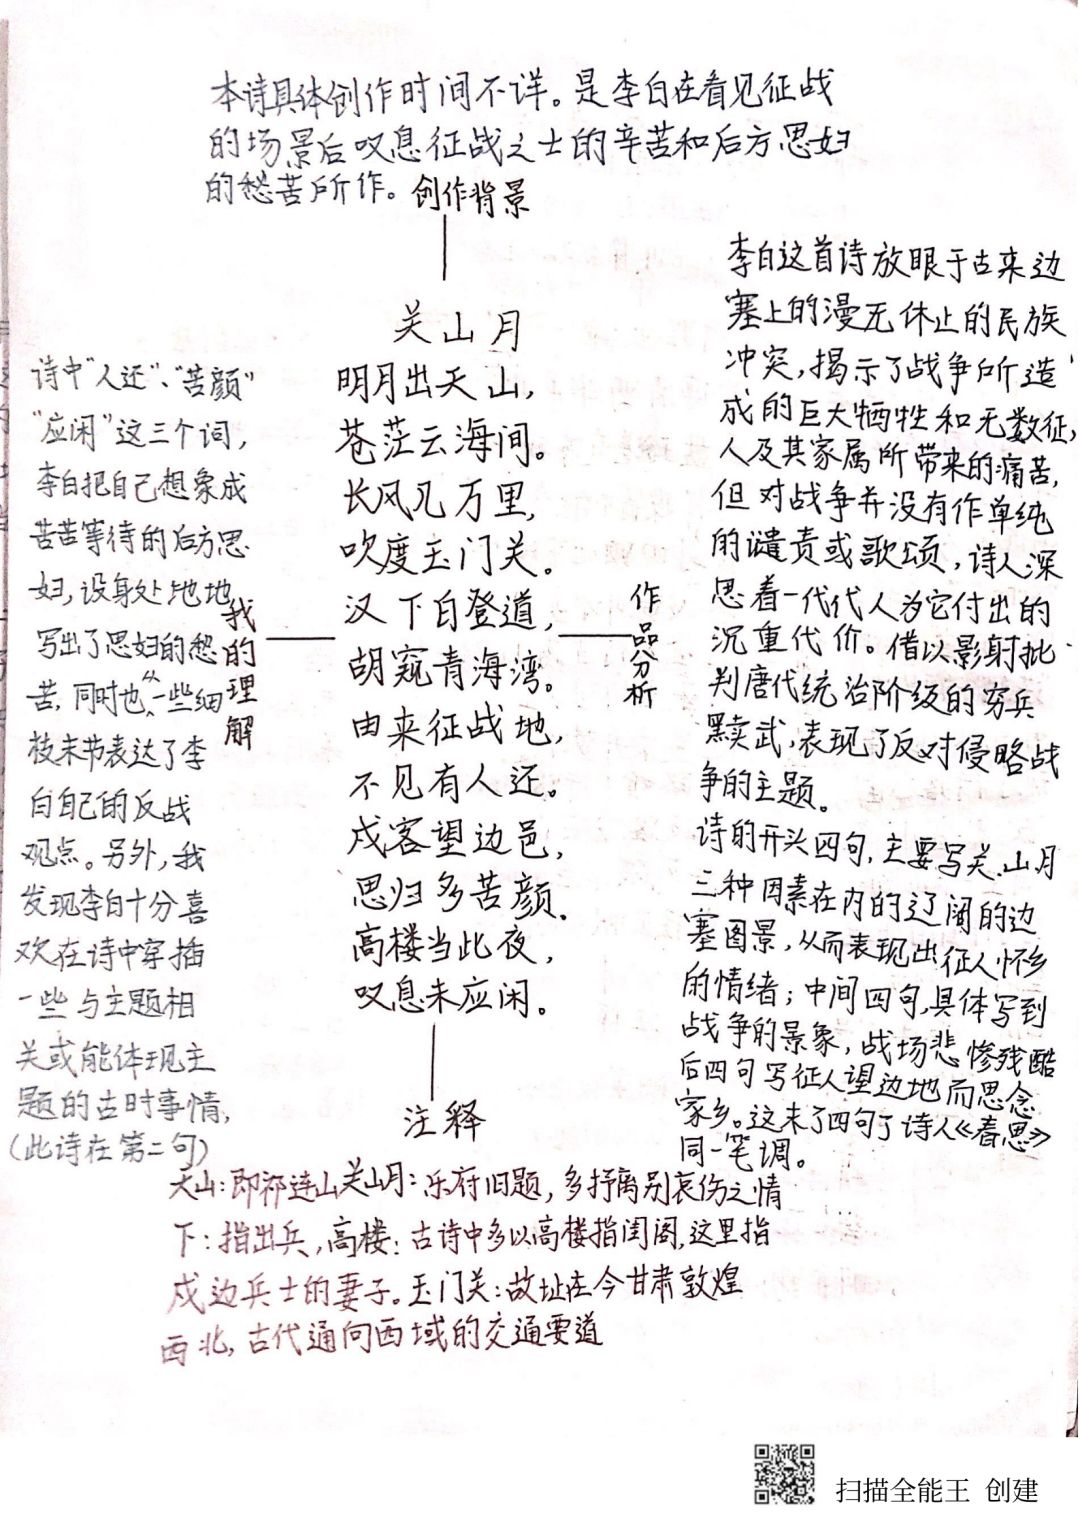 本诗具体创作时间不详。是李白在看见征战
的场景后叹息征战之士的辛苦和后方思妇
的愁苦所作。创作背景
关山月
明月出天山，
苍茫云海间。
长风几万里，
吹度玉门关。
汉下白登道，
胡窥青海湾。
由来征战地，
不见有人还。
戍客望边邑，
思归多苦颜。
高楼当此夜，
叹息未应闲。
诗中“人还”、“苦颜”
“应闲”这三个词，
李白把自己想象成
苦苦等待的后方思
妇，设身处地地
写出了思妇的愁
苦，同时也从一些细
枝末节表达了李
白自己的反战
观点。另外，我
发现李白十分喜
欢在诗中穿插
一些与主题相
关或能体现主
题的古时事情，
（此诗在第二句）
我的理解
作品分析
李白这首诗放眼于古来边
塞上的漫无休止的民族
冲突，揭示了战争所造
成的巨大牺牲和无数征
人及其家属所带来的痛苦，
但对战争并没有作单纯
的谴责或歌颂，诗人深
思着一代代人为它付出的
沉重代价。借以影射批
判唐代统治阶级的穷兵
黩武，表现了反对侵略战
争的主题。
诗的开头四句，主要写关、山、月
三种因素在内的辽阔的边
塞图景，从而表现出征人怀乡
的情绪；中间四句，具体写到
战争的景象，战场悲惨残酷
后四句写征人望边地而思念
家乡。这末了四句了诗人《春思》
同一笔调。
注释
天山：即祁连山 关山月：乐府旧题，多抒离别哀伤之情
下：指出兵，高楼：古诗中多以高楼指闺阁，这里指
戍边兵士的妻子。玉门关：故址在今甘肃敦煌
西北，古代通向西域的交通要道
扫描全能王 创建